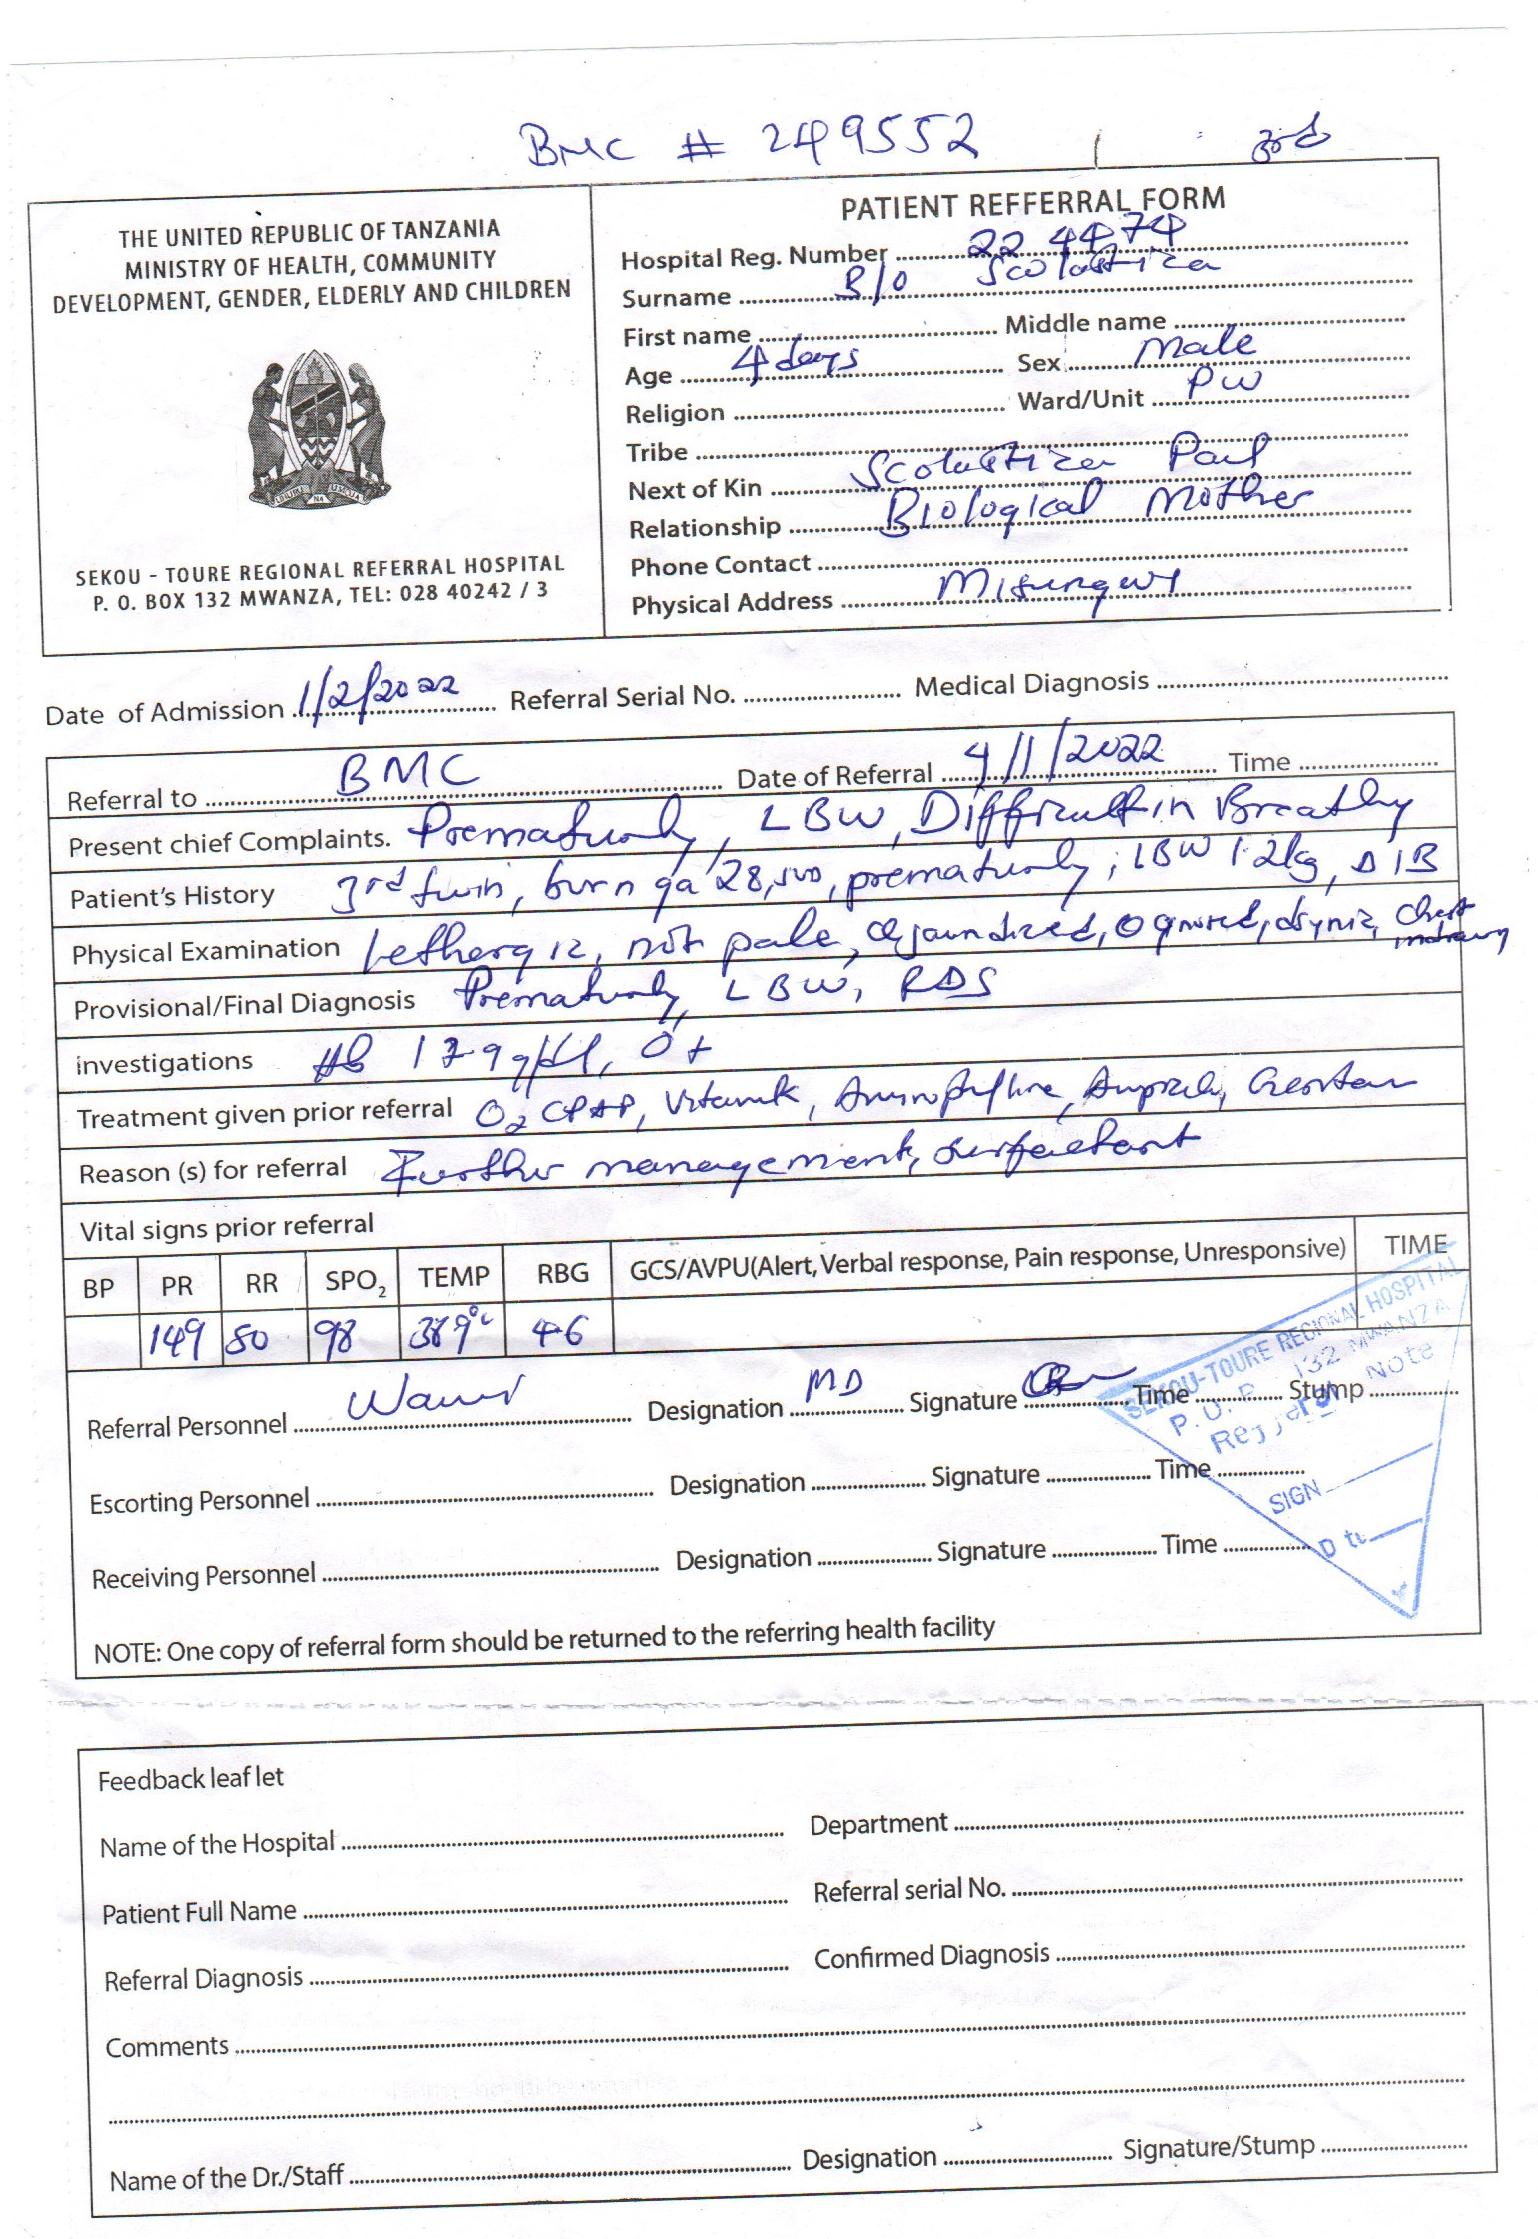 BMC # 249552 3rd
THE UNITED REPUBLIC OF TANZANIA
MINISTRY OF HEALTH, COMMUNITY
DEVELOPMENT, GENDER, ELDERLY AND CHILDREN
UHURU NA UMOJA
SEKOU - TOURE REGIONAL REFERRAL HOSPITAL
P. O. BOX 132 MWANZA, TEL: 028 40242 / 3
PATIENT REFFERRAL FORM
Hospital Reg. Number 22 44 74
Surname B/O Scolastica
First name Middle name
Age 4 days Sex Male
Religion Ward/Unit PW
Tribe
Next of Kin Scolastica Paul
Relationship Biological Mother
Phone Contact
Physical Address Misungwi
Date of Admission 1/2/2022 Referral Serial No. Medical Diagnosis
Referral to BMC Date of Referral 4/1/2022 Time
Present chief Complaints. Prematurity, LBW, Difficult in Breathing
Patient's History 3rd twin, born ga 28, prematurity, LBW 1.2kg, DIB
Physical Examination Lethergic, not pale, jaundiced, dysnic, chest indrawing
Provisional/Final Diagnosis Prematurity, LBW, RDS
Investigations Hb g/dl, O+
Treatment given prior referral O2 CPAP, Vitamin K, Aminophylline,
Reason (s) for referral Further management, surfactant
Vital signs prior referral
BP PR RR SPO2 TEMP RBG GCS/AVPU(Alert, Verbal response, Pain response, Unresponsive) TIME
149 50 98 4.6
Referral Personnel Designation MD Signature Time Stump
Escorting Personnel Designation Signature Time
Receiving Personnel Designation Signature Time
SEKOU-TOURE REGIONAL HOSPITAL
132 MWANZA
Note
SIGN
NOTE: One copy of referral form should be returned to the referring health facility
Feedback leaf let
Name of the Hospital Department
Patient Full Name Referral serial No.
Referral Diagnosis Confirmed Diagnosis
Comments
Name of the Dr./Staff Designation Signature/Stump